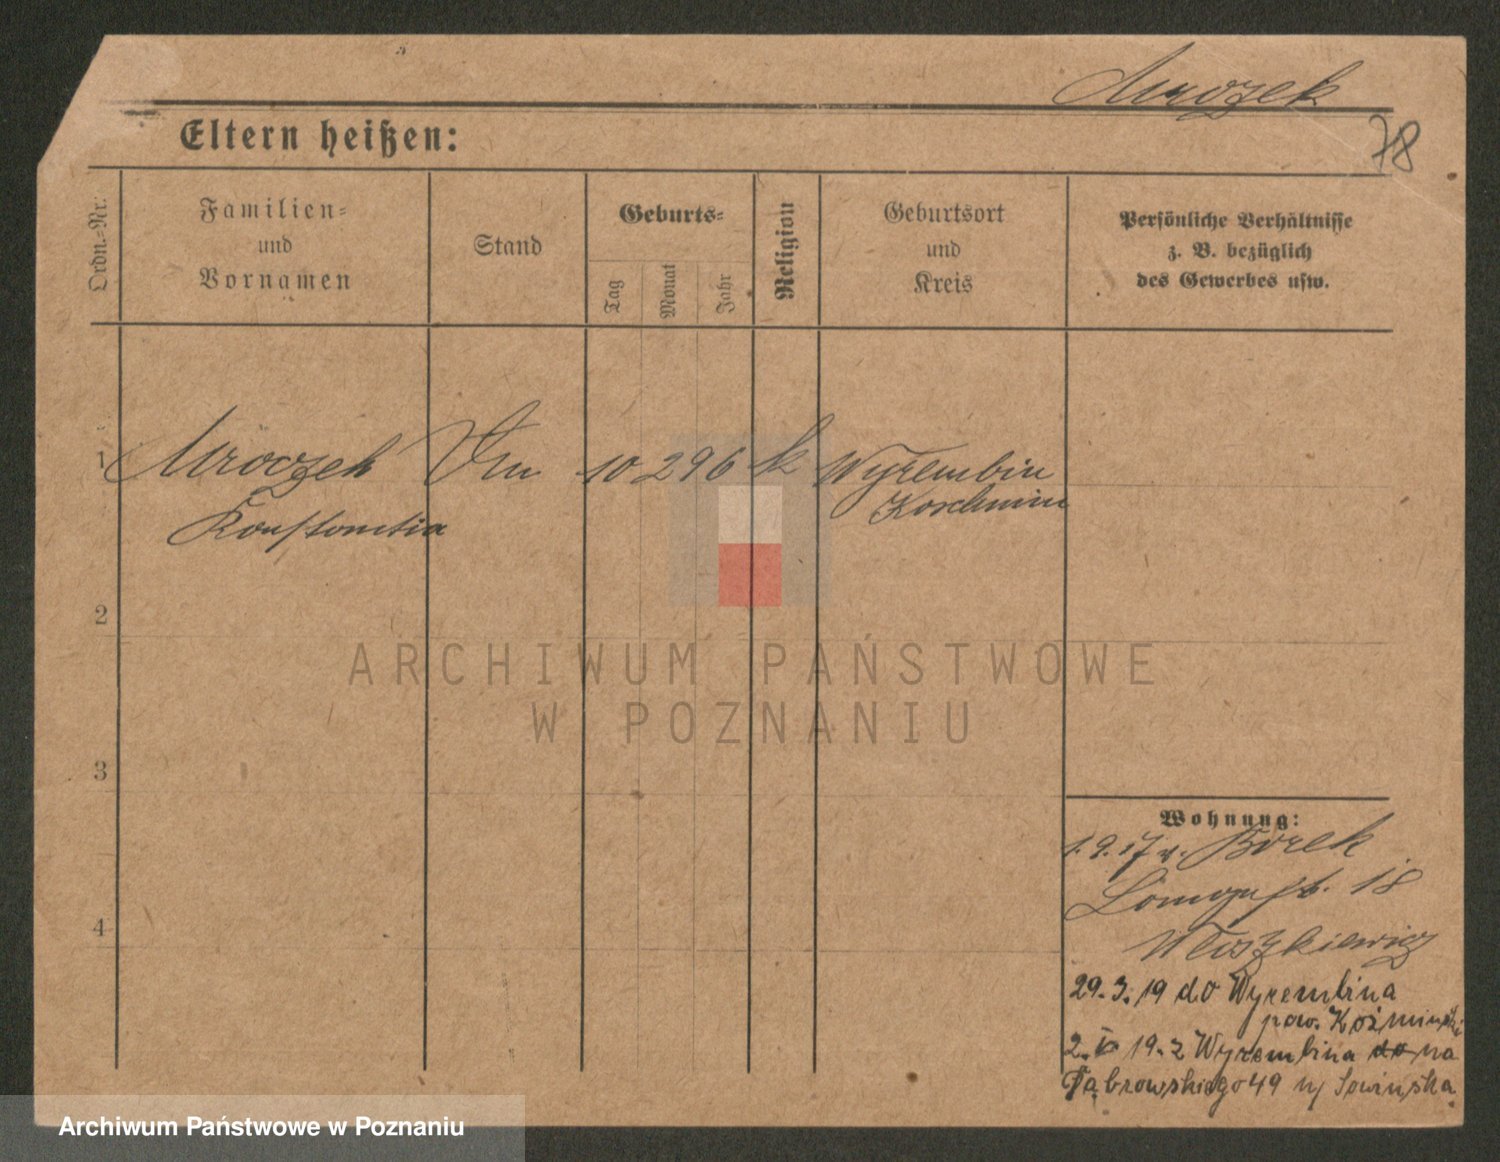 Mrozek
78
Eltern heißen:
Ordn.-Nr.
Familien-
und
Vornamen
Stand
Geburts-
Tag
Monat
Jahr
Religion
Geburtsort
und
Kreis
Persönliche Verhältnisse
z. B. bezüglich
des Gewerbes usw.
1 Mroczek 10 2 96 k Wyrembin
Konstantia Koschmin
2
3
4
Wohnung:
1.9.17 v. Borek
18
29.3.19 do Wyrembina
pow. Koźmiński
2. V 19. z Wyrembina do na
Dąbrowskiego 49 Sowińska
ARCHIWUM PAŃSTWOWE
W POZNANIU
Archiwum Państwowe w Poznaniu